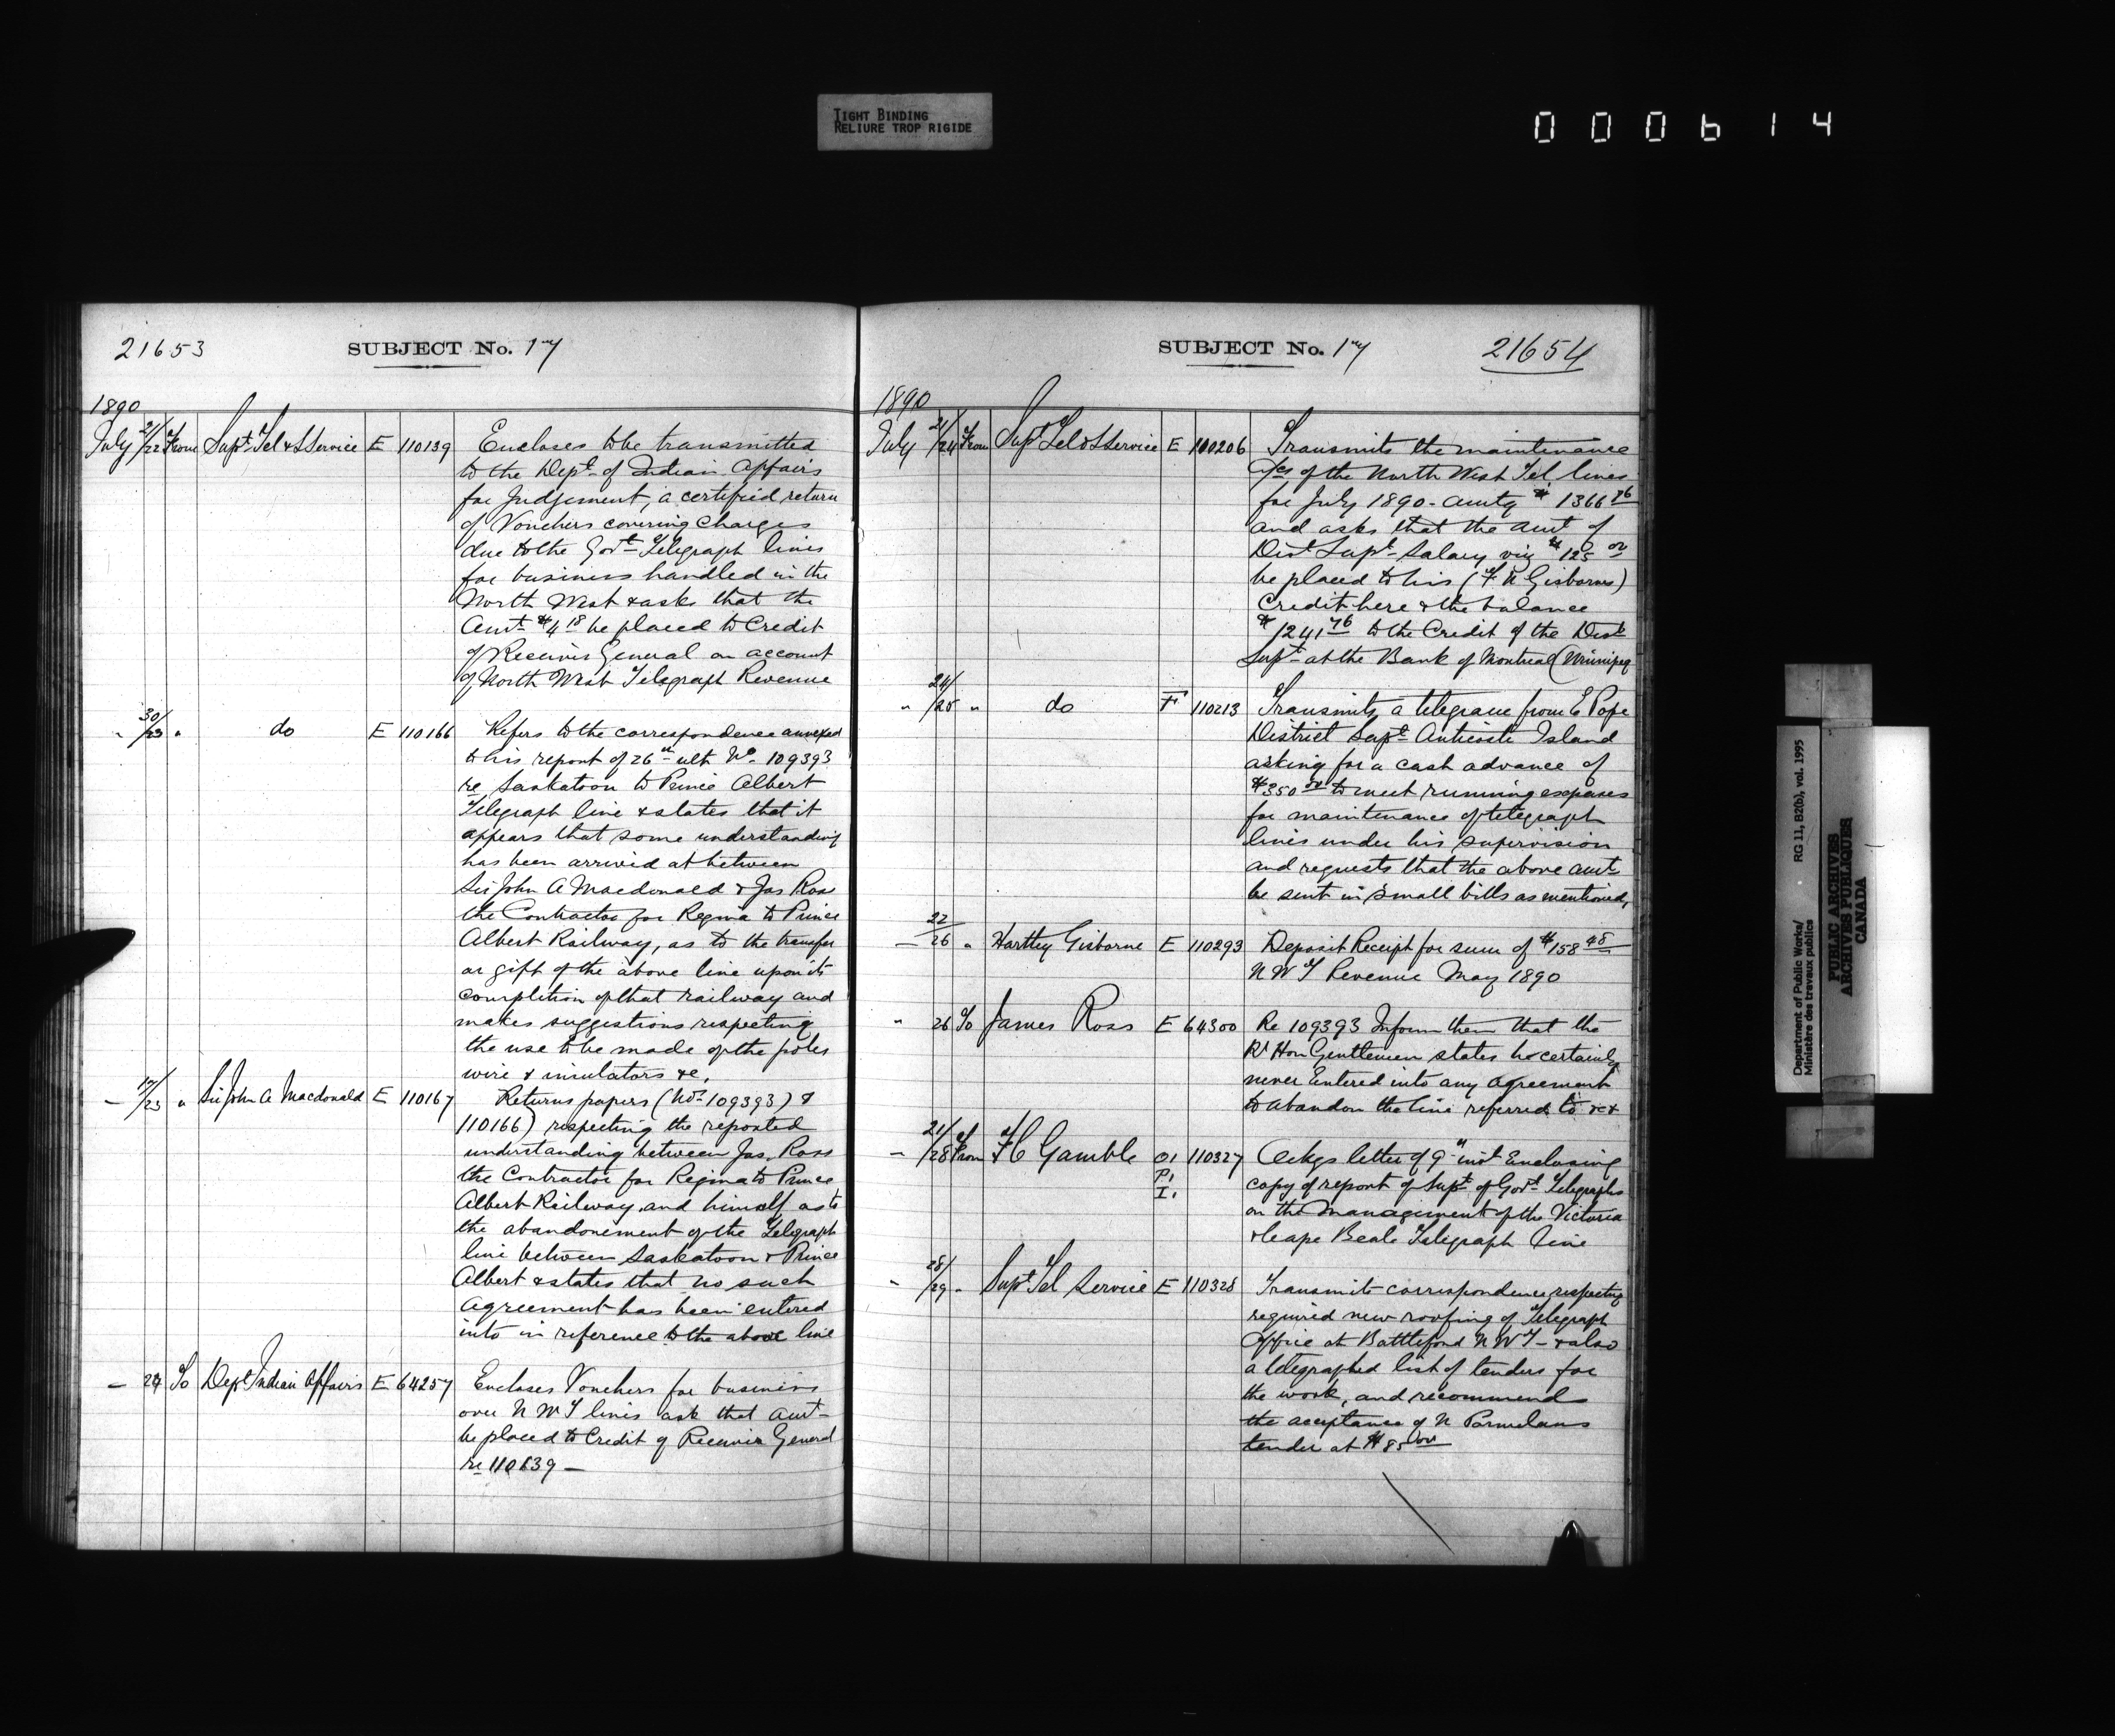 TIGHT BINDING
RELIURE TROP RIGIDE
000614
21653
SUBJECT No. 17
1890
July 21/22 From Supt Tel & S Service E 110139 Encloses to be transmitted
to the Dept of Indian Affairs
for Judgement, a certified return
of Vouchers covering Charges
due to the Govt Telegraph lines
for business handled in the
North West & asks that the
Amt $4 18 be placed to Credit
of Receiver General on account
of North West Telegraph Revenue
" 30/23 " do E 110166 Refers to the correspondence annexed
to his report of 26th ult No. 109393
re Saskatoon to Prince Albert
Telegraph line & states that it
appears that some understanding
has been arrived at between
Sir John A Macdonald & Jas Ross
the Contractor for Regina to Prince
Albert Railway, as to the transfer
or gift of the above line upon its
completion of that railway and
makes suggestions respecting
the use to be made of the poles
wire & insulators &c.
— /23 " Sir John A Macdonald E 110167 Returns papers (Nos 109393) &
110166) respecting the reported
understanding between Jas. Ross
the Contractor for Regina to Prince
Albert Railway, and himself as to
the abandonement of the Telegraph
line between Saskatoon & Prince
Albert & states that no such
agreement has been entered
into in reference to the above line
— 24 To Dept Indian Affairs E 64257 Encloses Vouchers for business
over N W T lines ask that Amt
be placed to Credit of Receiver General
re 110139 —
SUBJECT No. 17
21654
1890
July 21/24 From Supt Tel & S Service E 110206 Transmits the maintenance
a/cs of the North West Tel lines
for July 1890 - amtg $1366 76
and asks that the amt of
Dist Supt Salary viz $125 00
be placed to his (F N Gisborne)
Credit here & the balance
$1241 76 to the Credit of the Dist
Supt at the Bank of Montreal (Winnipeg
" 24/25 " do F 110213 Transmits a telegram from E Pope
District Supt Anticosti Island
asking for a cash advance of
$350 00 to meet running expenses
for maintenance of telegraph
lines under his supervision
and requests that the above amt
be sent in small bills as mentioned,
— 22/26 " Hartley Gisborne E 110293 Deposit Receipt for sum of $158 48
N W T Revenue May 1890
" 26 To James Ross E 64300 Re 109393 Inform them that the
Rt Hon Gentlemen states he certainly
never Entered into any agreement
to abandon the line referred to &c
— 21/28 From F C Gamble O1 110327 Ackgs letter of 9th inst Enclosing
P1 copy of report of Supt of Govt Telegraphs
I1 on the Management of the Victoria
& Cape Beale Telegraph Line
" 28/29 " Supt Tel Service E 110328 Transmits correspondence respecting
required new roofing of Telegraph
Office at Battleford N W T — & also
a telegraphed list of tenders for
the work, and recommends
the acceptance of N Parmelans
tender at $85 00
Department of Public Works/
Ministère des travaux publics
RG 11, B2(b), vol. 1995
PUBLIC ARCHIVES
ARCHIVES PUBLIQUES
CANADA